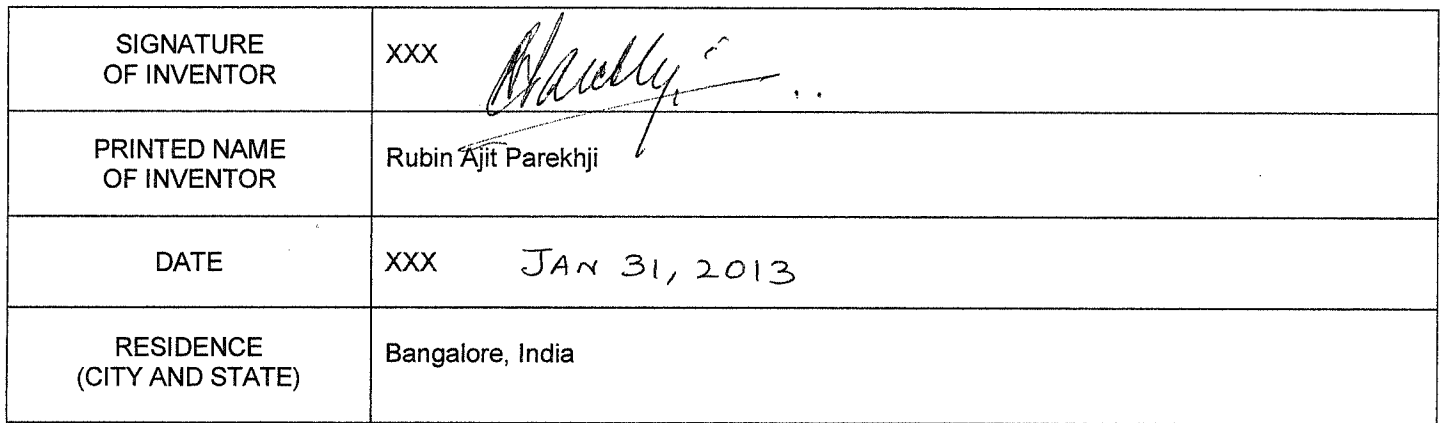 SIGNATURE
OF INVENTOR
XXX
PRINTED NAME
OF INVENTOR
Rubin Ajit Parekhji
DATE
XXX JAN 31, 2013
RESIDENCE
(CITY AND STATE)
Bangalore, India